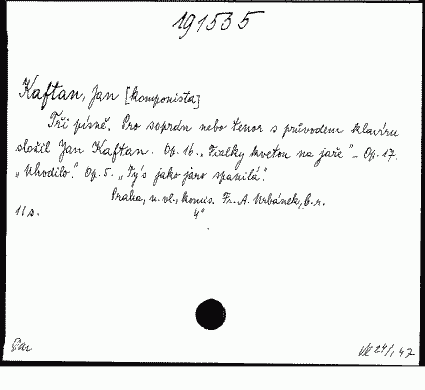 191535
Kaftan, Jan [komponista]
Tři písně. Pro soprán nebo tenor s průvodem klavíru
složil Jan Kaftan. Op. 16. „Fialky kvetou na jaře" - Op. 17.
„Uhodilo." Op. 5. „Ty's jako jaro spanilá".
Praha, n. vl., komis. Fr. A. Urbánek, b. r.
11 s. 4°